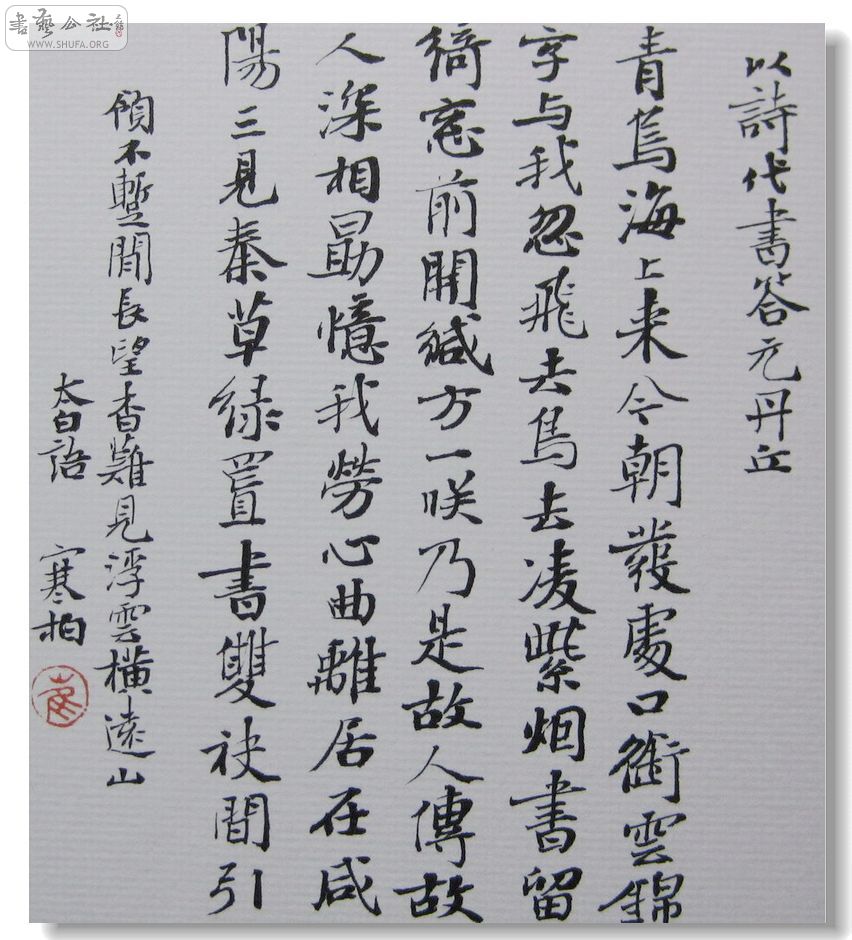 書藝公社
WWW.SHUFA.ORG
以詩代書答元丹丘
青鳥海上来今朝發處口銜雲錦
字与我忽飛去鳥去凌紫烟書留
綺窓前開緘方一咲乃是故人傳故
人深相勗憶我勞心曲離居在咸
陽三見秦草緑置書雙袂間引
領不蹔閒長望杳難見浮雲橫遠山
太白語 寒柏